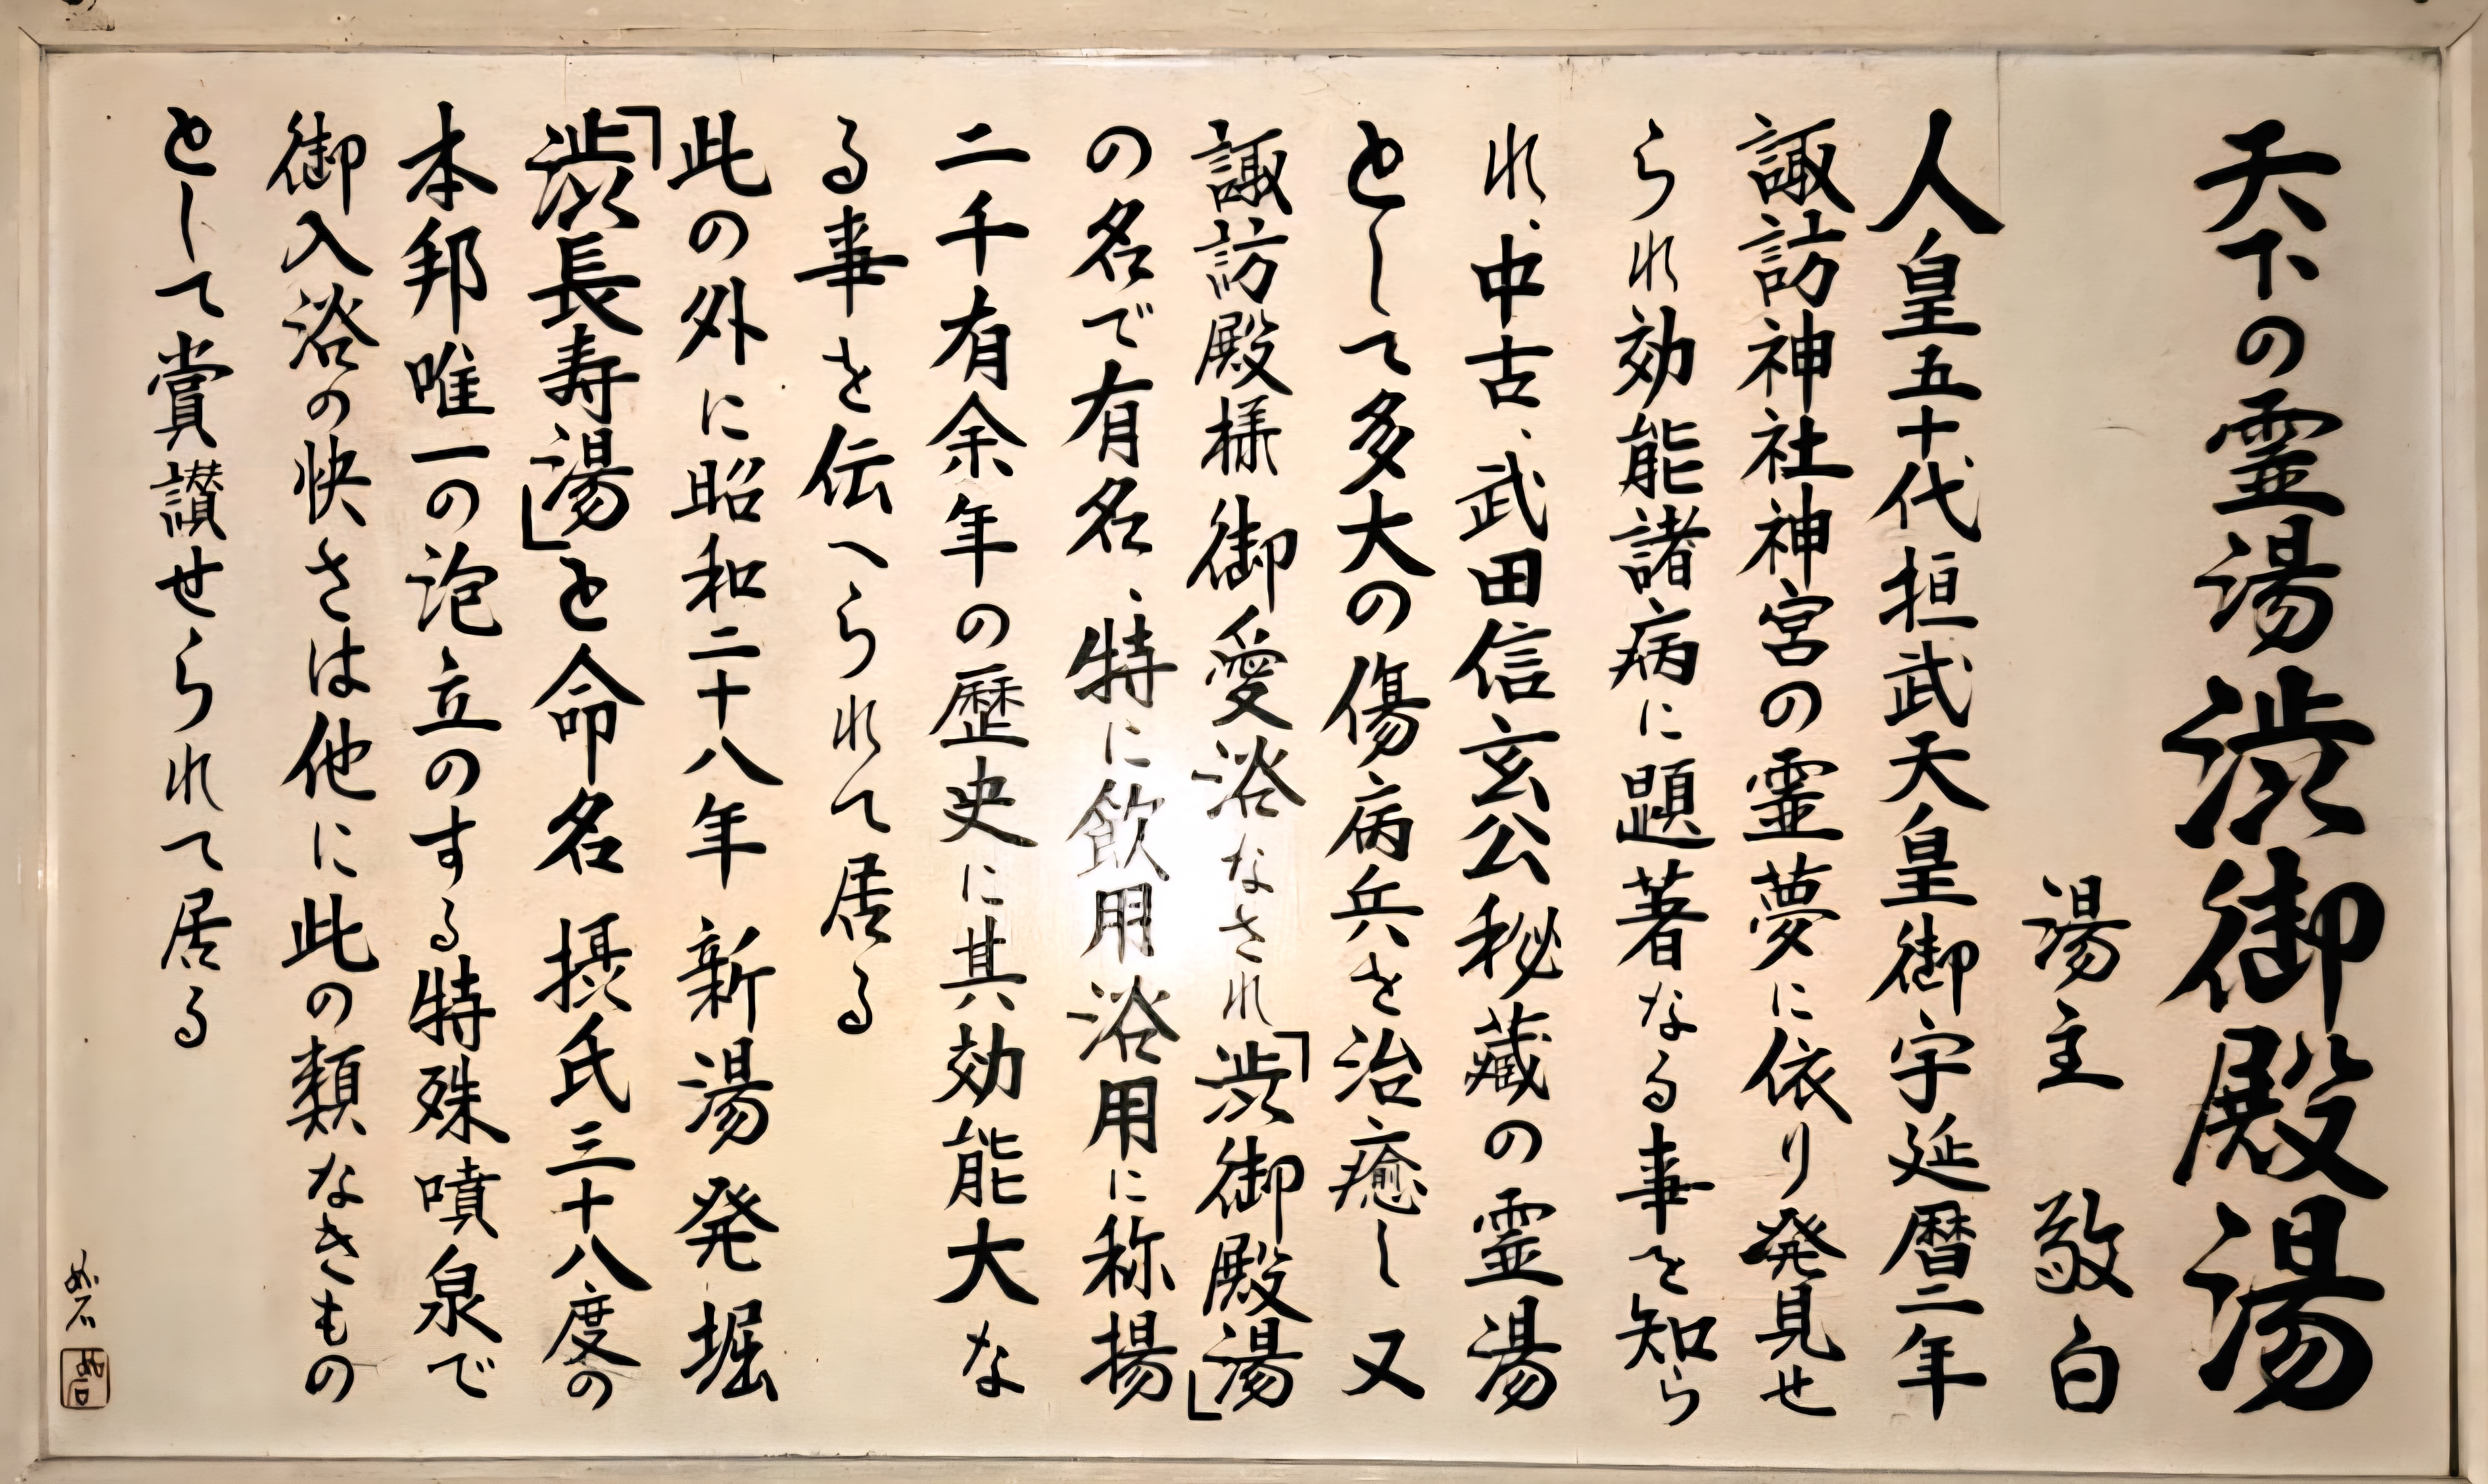 天下の霊湯渋御殿湯
湯主 敬白
人皇五十代桓武天皇御宇延暦二年
諏訪神社神宮の霊夢に依り発見せ
られ効能諸病に顕著なる事を知ら
れ、中古、武田信玄公秘蔵の霊湯
として多大の傷病兵を治癒し又
諏訪殿様御愛浴なされ「渋御殿湯」
の名で有名、特に飲用浴用に称揚
二千有余年の歴史に其効能大な
る事を伝へられて居る
此の外に昭和二十八年新湯発堀
「渋長寿湯」と命名 摂氏三十八度の
本邦唯一の泡立のする特殊噴泉で
御入浴の快さは他に此の類なきもの
として賞讃せられて居る